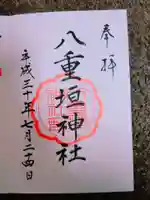 奉拝
八重垣神社
平成三十年七月二十四日